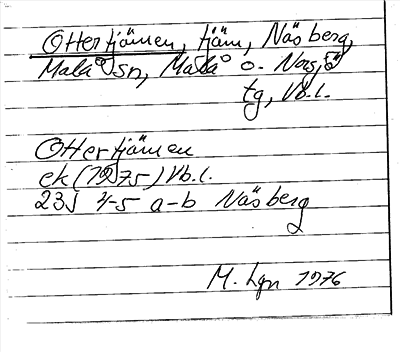 Ottertjärnen, tjärn, Näsberg,
Malå sn, Malå o. Norsjö
tg, Vb.l.
Ottertjärnen
ek (1975) Vb.l.
23J 4-5 a-b Näsberg
M. Lgn 1976